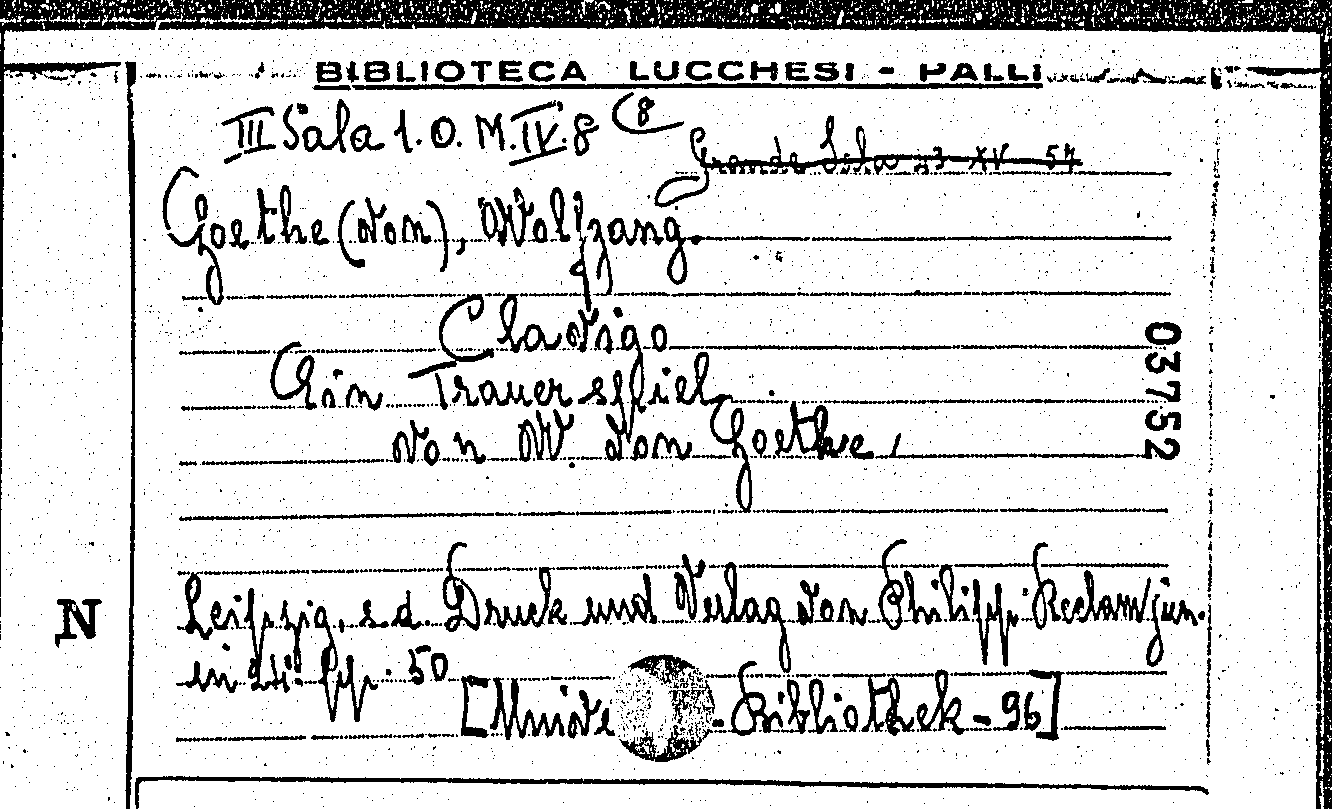 BIBLIOTECA LUCCHESI - PALLI
III Sala 1.O. M.IV.8 (8
Grande Sala 23 XV 57
Goethe (von), Wolfgang.
Clavigo
Ein Trauerspiel
von W. von Goethe,
03752
Leipzig, s.d. Druck und Verlag von Philipp Reclam jun.
N
in 24° pp. 50
[Unive - Bibliothek - 96]